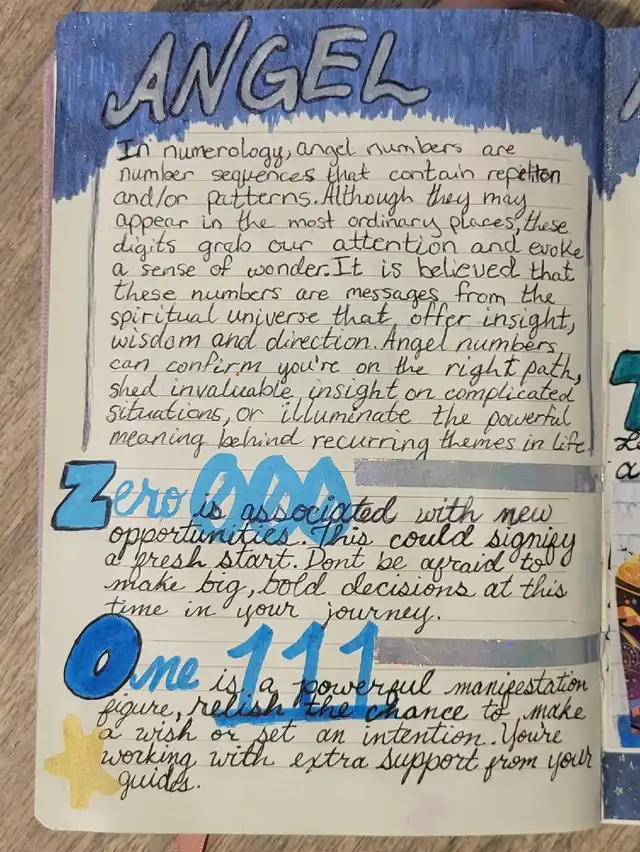 ANGEL
In numerology, angel numbers are
number sequences that contain repetition
and/or patterns. Although they may
appear in the most ordinary places, these
digits grab our attention and evoke
a sense of wonder. It is believed that
these numbers are messages from the
spiritual universe that offer insight,
wisdom and direction. Angel numbers
can confirm you're on the right path,
shed invaluable insight on complicated
situations, or illuminate the powerful
meaning behind recurring themes in life.
Zero 000 is associated with new
opportunities. This could signify
a fresh start. Dont be afraid to
make big, bold decisions at this
time in your journey.
One 111 is a powerful manifestation
figure, relish the chance to make
a wish or set an intention. You're
working with extra support from your
guides.